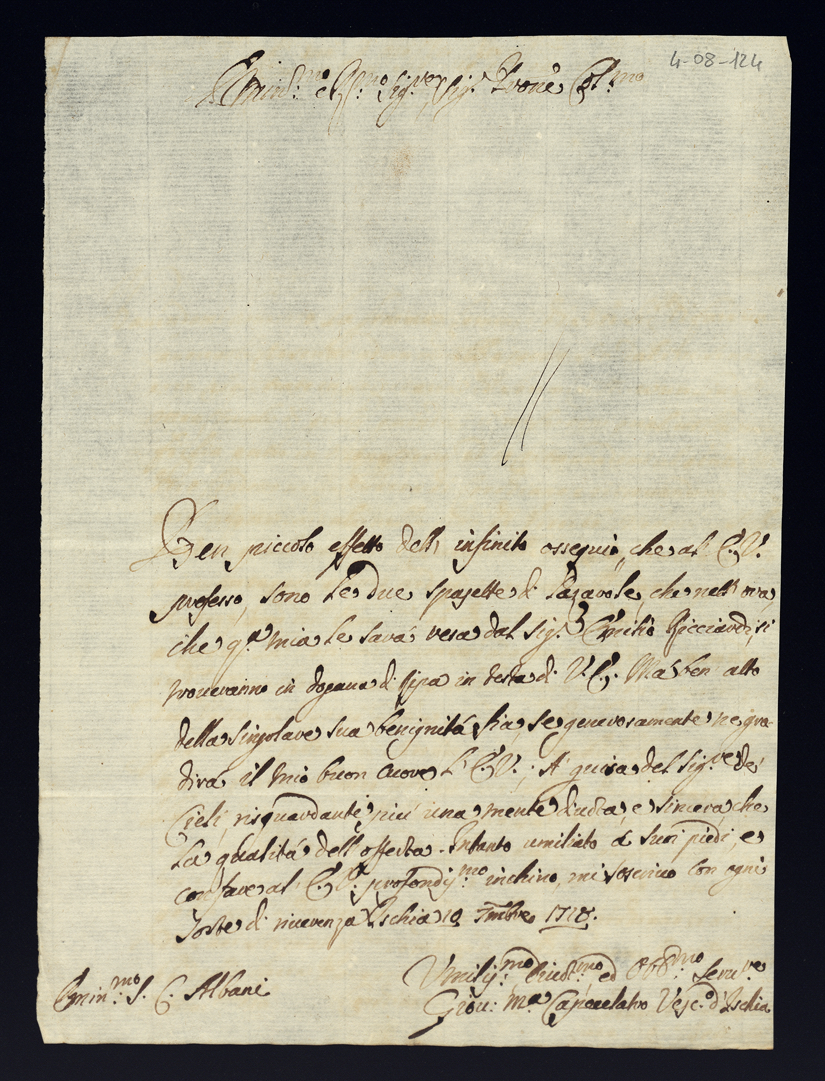 4-08-124
Emin.mo e R.mo Sig.re Sig.r P'rone Col.mo
Ben piccolo effetto dell' infinito ossequio, che al E. V.
professo, sono le due spasette di Lazarole, che nell' ora,
che q.ta mia le sarà resa dal Sig.r Emilio Ricciardi, si
troveranno in dogana di Ripa in testa di V. E. Ma ben' atto
della singolare sua benignità sia se generosamente ne gra-
dirà il mio buon cuore l' E. V., A' guisa del Sig.re de'
Cieli, risguardante più una mente divota, e sincera, che
la qualità dell' offerta. Intanto umiliato a' suoi piedi, e
con fare al E. V. profondis.mo inchino, mi soscrivo con ogni
sorte di riverenza Ischia 19 7mbre 1718.
Umilis.mo Divot.mo ed Obb.mo Serv.re
Giov: M.a Capecelatro Vesc.o d'Ischia
Emin.mo S. C. Albani